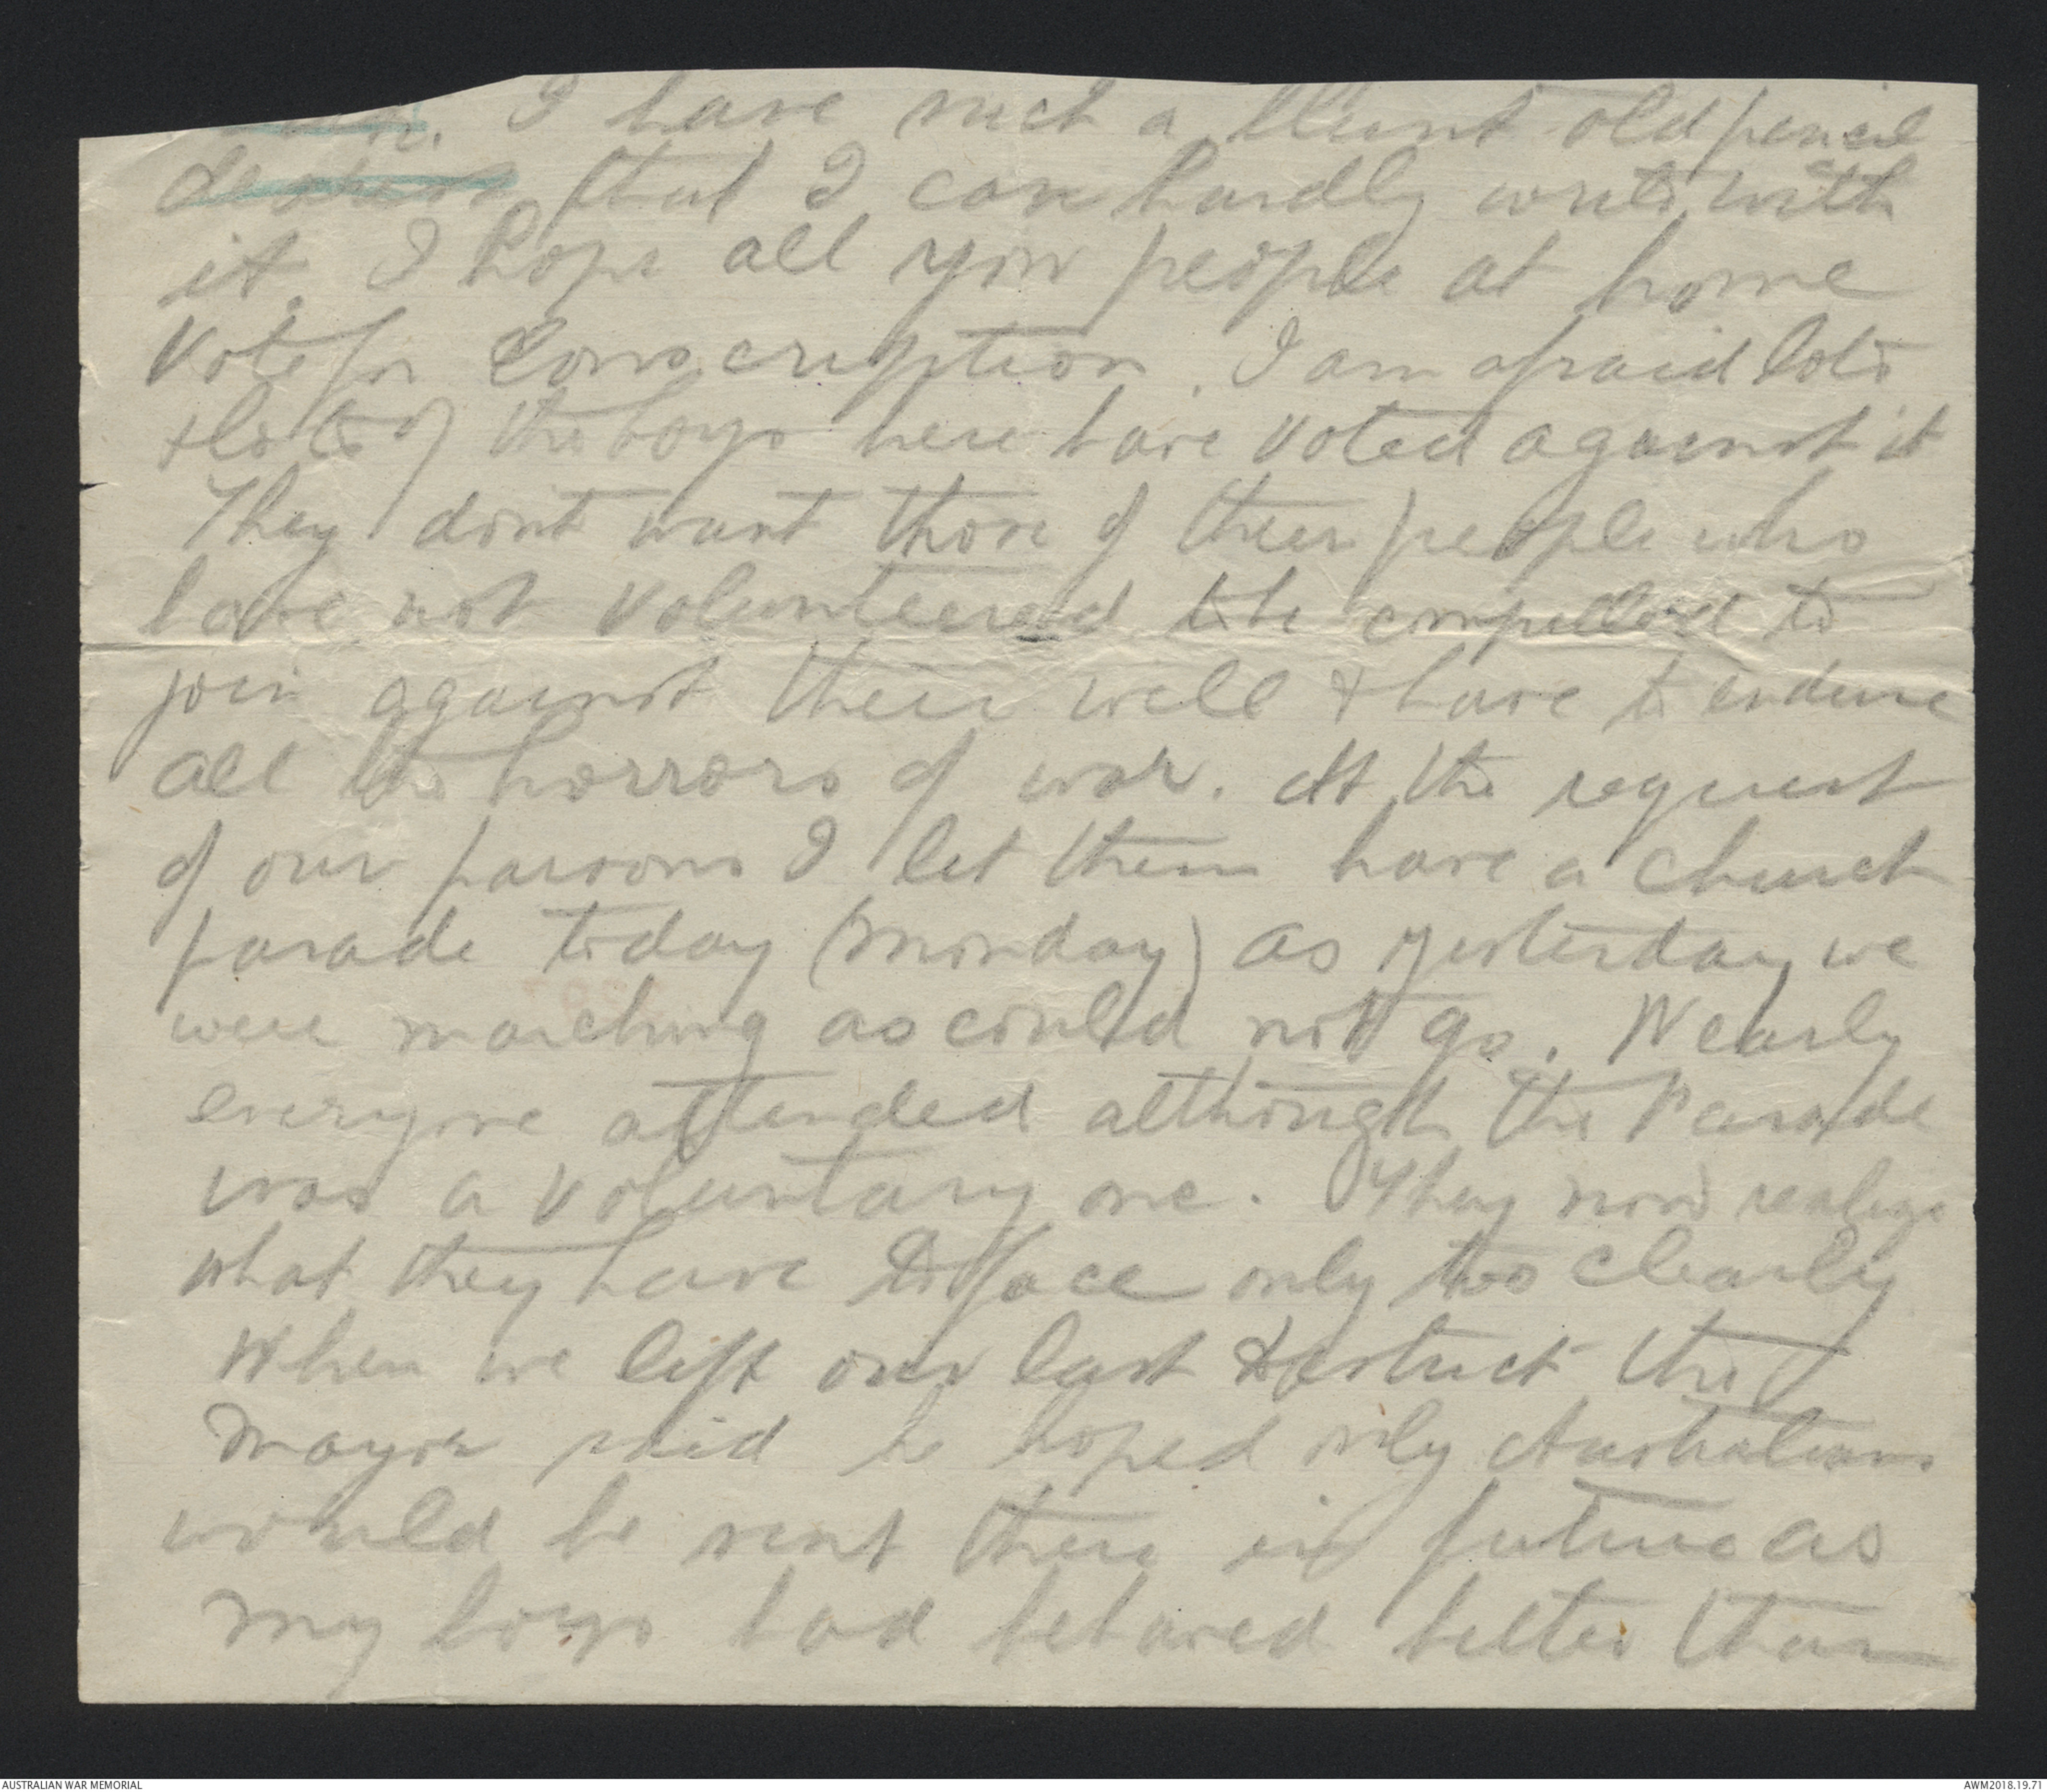 I have such a blunt old pencil
that I can hardly write with
it. I hope all you people at home
Vote for Conscription. I am afraid lots
& lots of the boys here have voted against it
They dont want those of their people who
have not volunteered to be compelled to
join against their will & have to endure
all the horrors of war. At the request
of our parsons I let them have a church
parade today (Monday) as yesterday we
were marching as could not go. Nearly
everyone attended although the Parade
was a voluntary one. They now realize
what they have to face only too clearly
When we left our last district the
Mayor said he hoped only Australians
would be sent there in future as
my boys had behaved better than
AUSTRALIAN WAR MEMORIAL
AWM2018.19.71